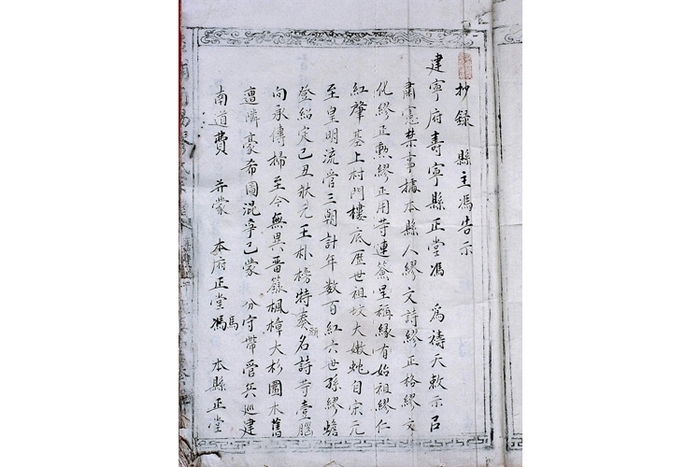 抄錄 縣主馮告示
建寧府壽寧縣正堂馮 為禱天敕示㠯
肅憲禁事據本縣人繆文詩繆正格繆文
化繆正勲繆正用等連簽呈稱緣有始祖繆仁
紅肇基上村門樓底歷世祖坟大嫩虵自宋元
至皇明流管三朝計年數百紅六世孫繆蟾
登紹定己丑狀元王朴榜特奏名詩等壹脉
向承傳掃至今無異畨籙楓樟大杉圍木舊
遭隣豪希圖混爭已蒙 分守帶管兵巡建
南道費 并蒙 本府正堂馮 本縣正堂
馬